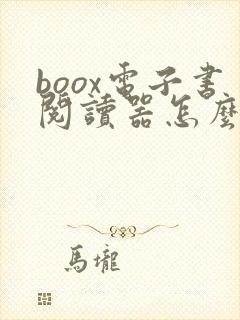 boox電子书
閱讀器怎麼
馬墔